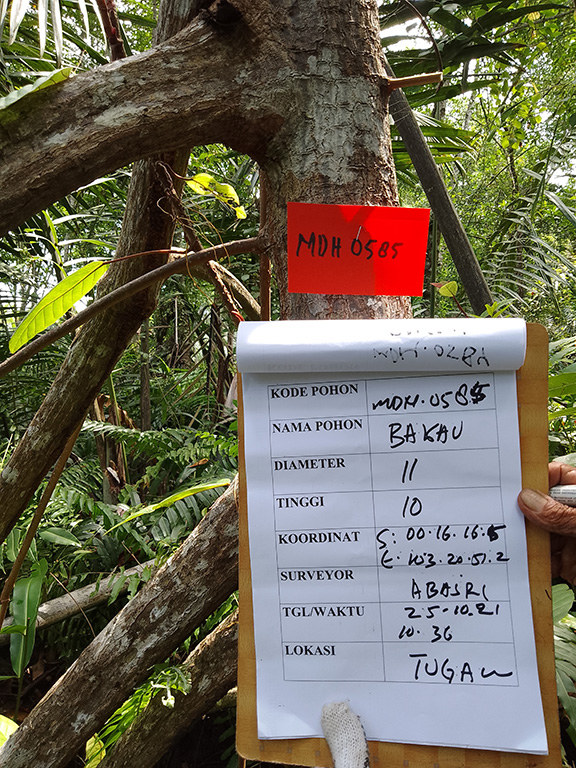 MDH 0585
MDH.0584
KODE POHON MDH.0585
NAMA POHON BAKAU
DIAMETER 11
TINGGI 10
KOORDINAT S: 00.16.16.5
E: 103.20.51.2
SURVEYOR ABASRI
TGL/WAKTU 25-10.21
10.36
LOKASI TUGAU